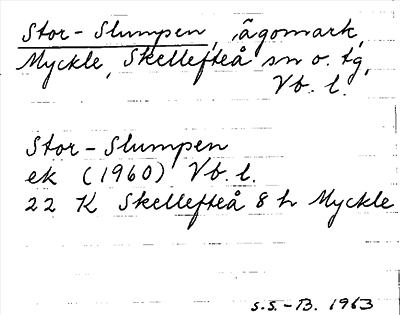 Stor-Slumpen, ägomark,
Myckle, Skellefteå sn o. tg,
Vb. l.
Stor-Slumpen
ek (1960) Vb. l.
22 K Skellefteå 8 h Myckle
S.S.-B. 1963